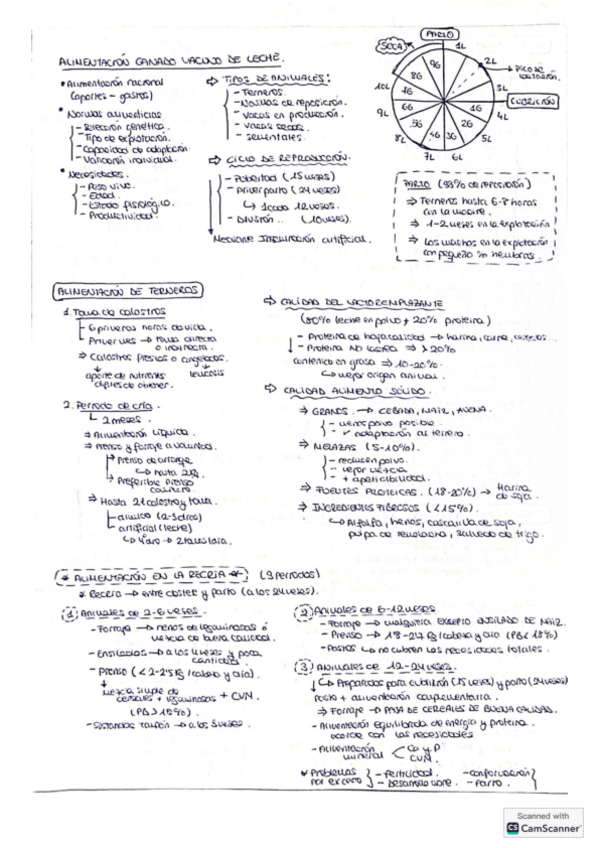 ALIMENTACIÓN GANADO VACUNO DE LECHE.
• Alimentación racional
(aportes - gastos)
• Normas alimenticias
- Selección genética.
- Tipo de explotación.
- Capacidad de adaptación
- Variación individual.
• Necesidades.
- Peso vivo.
- Edad.
- Estado fisiológico.
- Productividad.
⇒ TIPOS DE ANIMALES:
- Terneros.
- Novillas de reposición.
- Vacas en producción.
- Vacas secas.
- Sementales.
⇒ CICLO DE REPRODUCCIÓN.
- Pubertad (15 meses)
- Primer parto (24 meses)
↳ 1 cada 12 meses.
- División.. (10 meses).
Mediante Inseminación artificial.
PARTO
SECA
1L
2L
3L
4L
5L
6L
7L
8L
9L
10L
9G
8G
7G
6G
5G
4G
3G
2G
1G
Pico de lactación.
CUBRICIÓN
PARTO (33% de reposición)
⇒ Terneros hasta 6-8 horas
con la madre.
⇒ 1-2 meses en la explotación
⇒ Los machos en la explotación
con pequeño % hembras.
ALIMENTACIÓN DE TERNEROS
1. Toma de calostros
6 primeras horas de vida.
Primer mes → toma directa
o indirecta
⇒ Calostros frescos o congelados.
aporte de nutrientes
difíciles de obtener.
leucosis
2. Periodo de cría.
↳ 2 meses.
⇒ Alimentación líquida.
⇒ Pienso y forraje a voluntad.
Pienso de arranque
↳ hasta 2kg
Preferible pienso
⇒ Hasta 21 calostro y toma.
- animico (2-3 dias)
- artificial (leche)
↳ 4º dia → 2 tomas/dia.
⇒ CALIDAD DEL LACTOREEMPLAZANTE
(80% leche en polvo + 20% proteina)
- Proteina de baja calidad → harina, carne,
- Proteina no lactea ⇒ > 20%
contenido en grasa ⇒ 10-20%
↳ mejor origen animal.
⇒ CALIDAD ALIMENTO SÓLIDO.
⇒ GRANOS. → CEBADA, MAÍZ, AVENA.
- menos polvo posible.
- ✓ adaptación al ternero.
⇒ MELAZAS (5-10%).
- reducen polvo.
- mejor mezcla
- + apetecibilidad.
⇒ FUENTES PROTEICAS. (18-20%) → Harina
de soja.
⇒ INGREDIENTES FIBROSOS (<15%).
↳ Alfalfa, henos, cascarilla de soja,
pulpa de remolacha, salvado de trigo.
* ALIMENTACIÓN EN LA RECRÍA * (3 periodos)
* Recría → entre destete y parto (a los 24 meses).
1 Animales de 2-6 meses.
- Forraje → henos de leguminosas ó
mezcla de buena calidad.
- Ensilados → a los 4 meses y poca
cantidad.
- Pienso (<2-2'5 Kg/cabeza y día).
Mezcla simple de
cereales + leguminosas + CVM.
(PB > 15%).
- Sustancias tampón → a los 3 meses.
2 Animales de 6-12 meses
- Forraje → cualquiera EXCEPTO ENSILADO DE MAÍZ.
- Pienso → 1'8-2'4 Kg/cabeza y día (PB < 15%)
- Pastos → no cubren las necesidades totales.
3 Animales de 12-24 meses.
↳ Preparados para cubrición (15 meses) y parto (24 meses)
Pasto + alimentación complementaria.
⇒ Forraje → PAJA DE CEREALES DE BUENA CALIDAD.
- Alimentación equilibrada de energía y proteína.
acorde con las necesidades
- Alimentación
mineral < Ca y P
CVM.
✓ Problemas
por exceso
- fertilidad.
- Desarrollo ubre.
- conformación
- Parto.
Scanned with
CS CamScanner